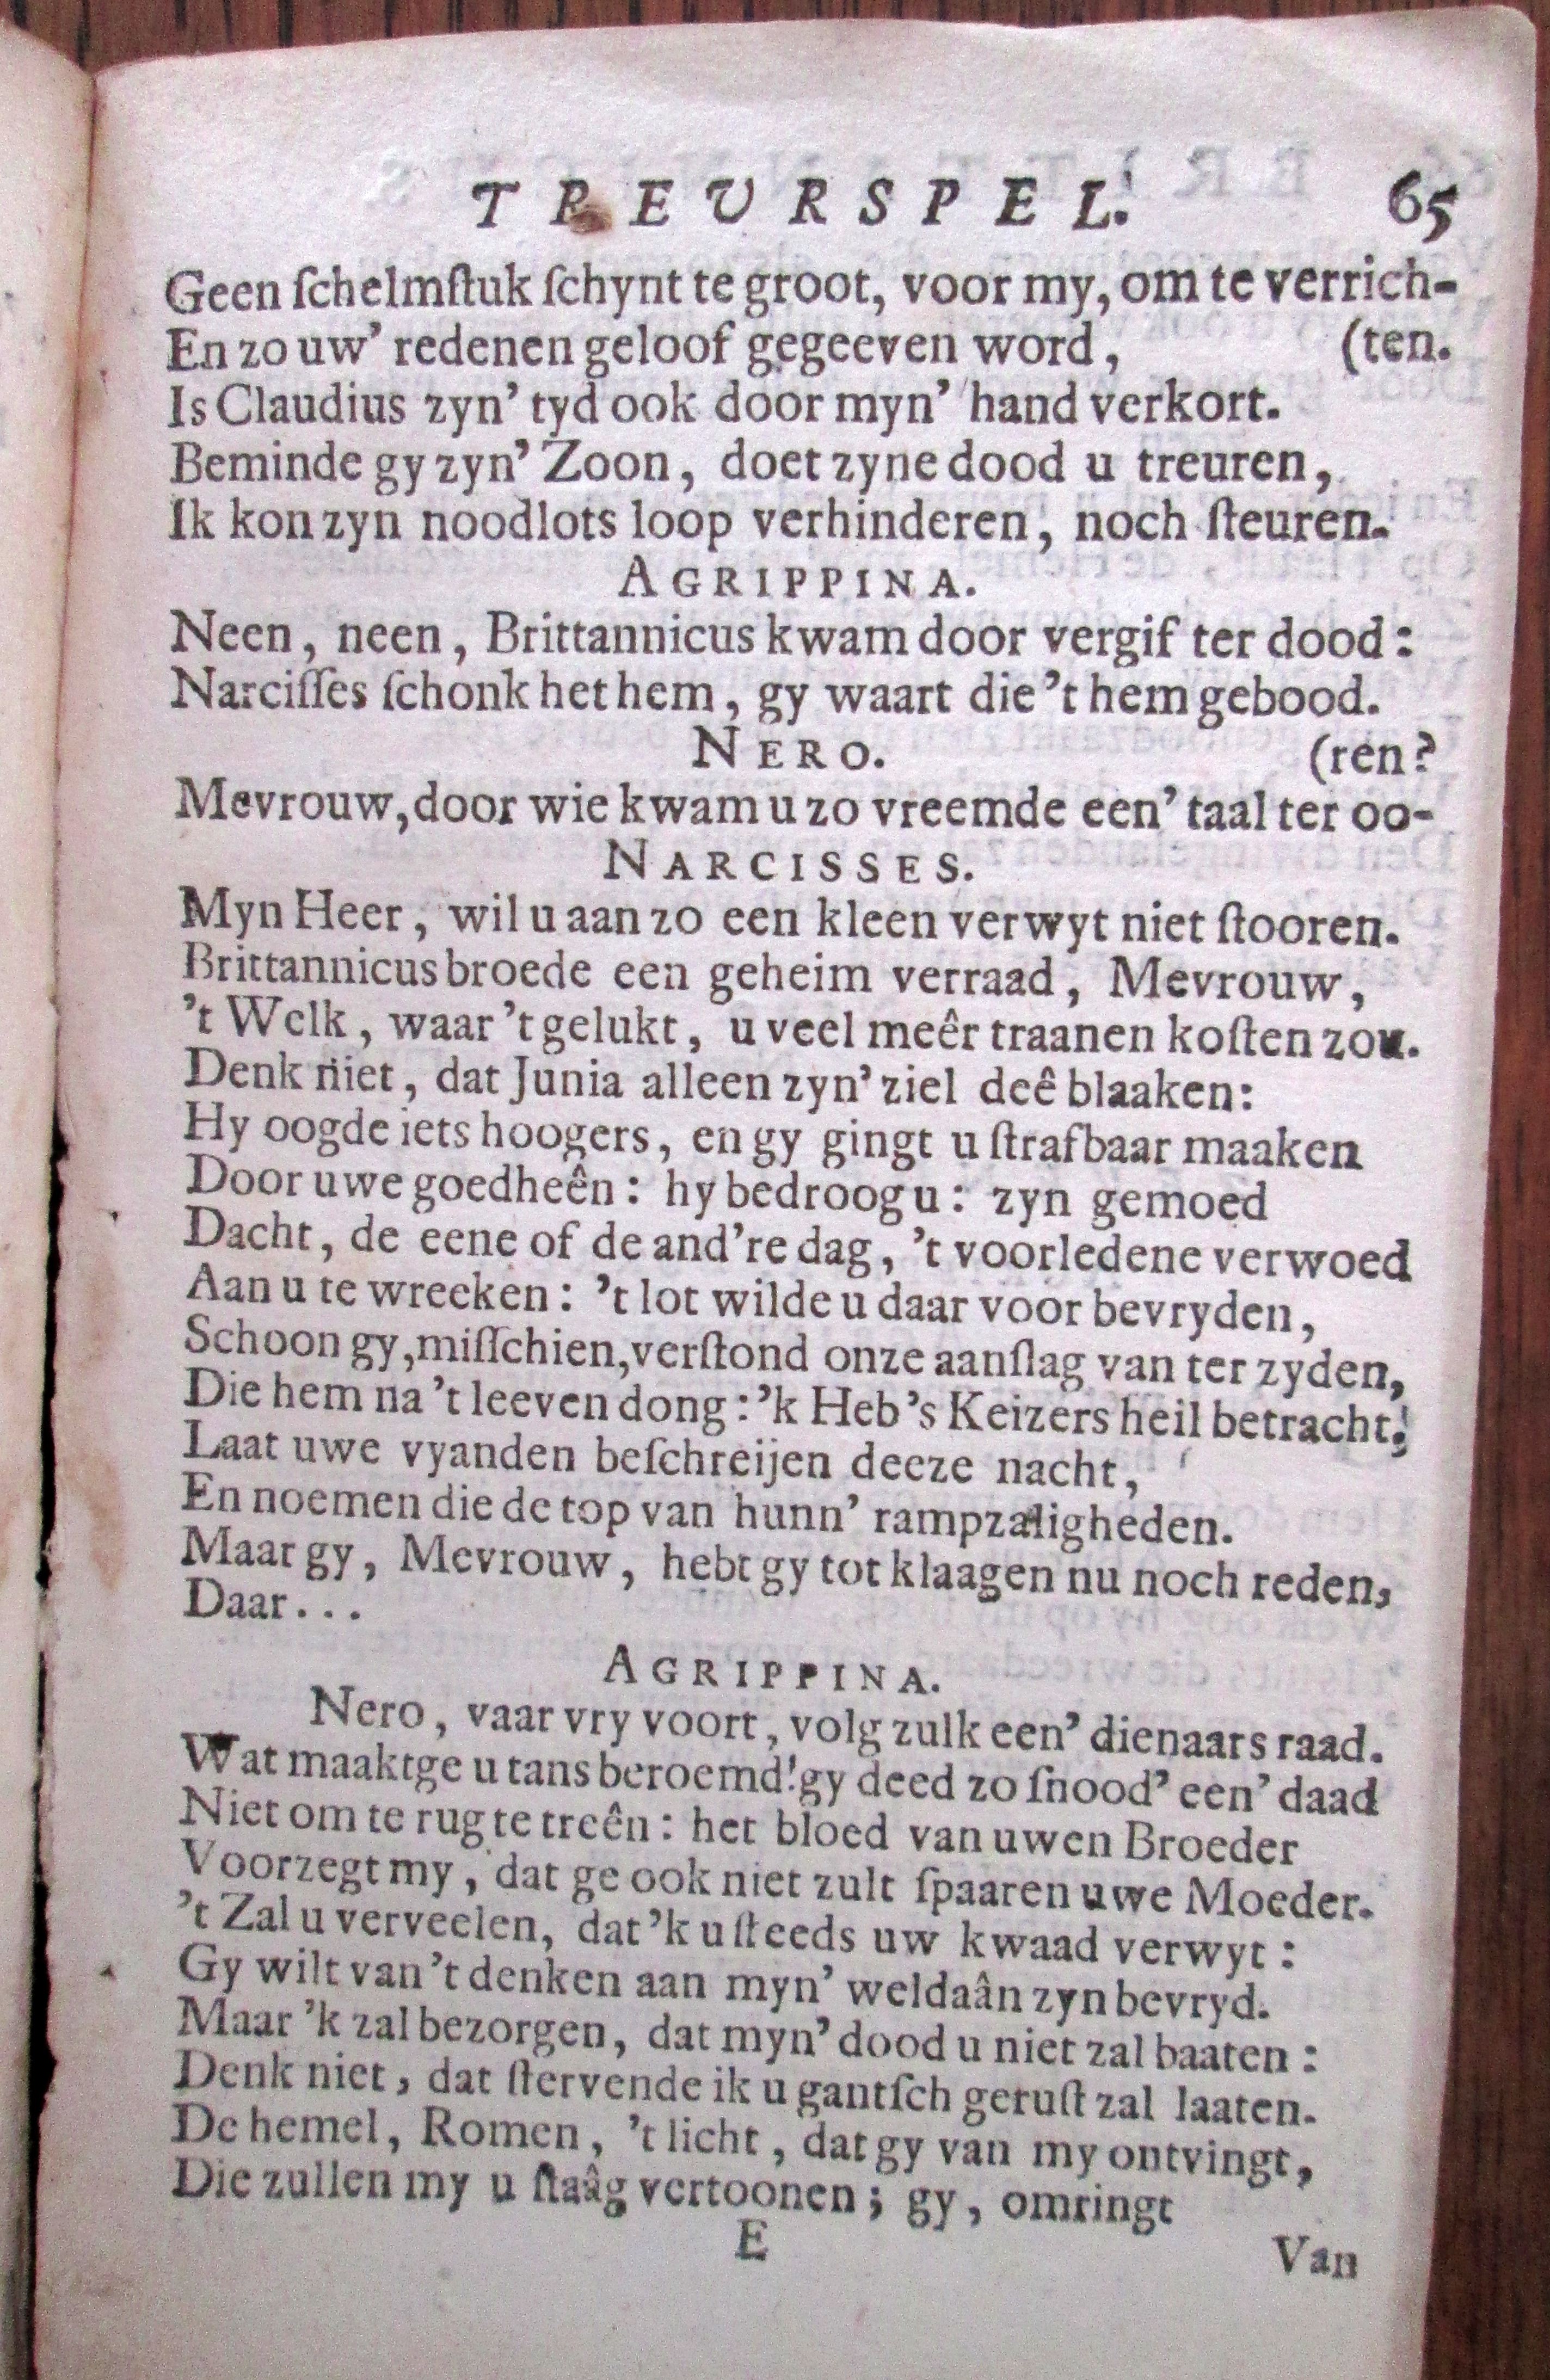 TREURSPEL. 65
Geen ſchelmſtuk ſchynt te groot, voor my, om te verrich-
En zo uw’ redenen geloof gegeeven word, (ten.
Is Claudius zyn’ tyd ook door myn’ hand verkort.
Beminde gy zyn’ Zoon, doet zyne dood u treuren,
Ik kon zyn noodlots loop verhinderen, noch ſteuren.
AGRIPPINA.
Neen, neen, Brittannicus kwam door vergif ter dood:
Narciſſes ſchonk het hem, gy waart die ’t hem gebood.
NERO. (ren?
Mevrouw, door wie kwam u zo vreemde een’ taal ter oo-
NARCISSES.
Myn Heer, wil u aan zo een kleen verwyt niet ſtooren.
Brittannicus broede een geheim verraad, Mevrouw,
’t Welk, waar ’t gelukt, u veel meêr traanen koſten zou.
Denk niet, dat Junia alleen zyn’ ziel deê blaaken:
Hy oogde iets hoogers, en gy gingt u ſtrafbaar maaken
Door uwe goedheên: hy bedroog u: zyn gemoed
Dacht, de eene of de and’re dag, ’t voorledene verwoed
Aan u te wreeken: ’t lot wilde u daar voor bevryden,
Schoon gy, miſſchien, verſtond onze aanſlag van ter zyden,
Die hem na ’t leeven dong: ’k Heb ’s Keizers heil betracht;
Laat uwe vyanden beſchreijen deeze nacht,
En noemen die de top van hunn’ rampzaligheden.
Maar gy, Mevrouw, hebt gy tot klaagen nu noch reden,
Daar...
AGRIPPINA.
Nero, vaar vry voort, volg zulk een’ dienaars raad.
Wat maaktge u tans beroemd! gy deed zo ſnood’ een’ daad
Niet om te rug te treên: het bloed van uwen Broeder
Voorzegt my, dat ge ook niet zult ſpaaren uwe Moeder.
’t Zal u verveelen, dat ’k u ſteeds uw kwaad verwyt:
Gy wilt van ’t denken aan myn’ weldaân zyn bevryd.
Maar ’k zal bezorgen, dat myn’ dood u niet zal baaten:
Denk niet, dat ſtervende ik u gantſch geruſt zal laaten.
De hemel, Romen, ’t licht, dat gy van my ontvingt,
Die zullen my u ſtaâg vertoonen; gy, omringt
E
Van